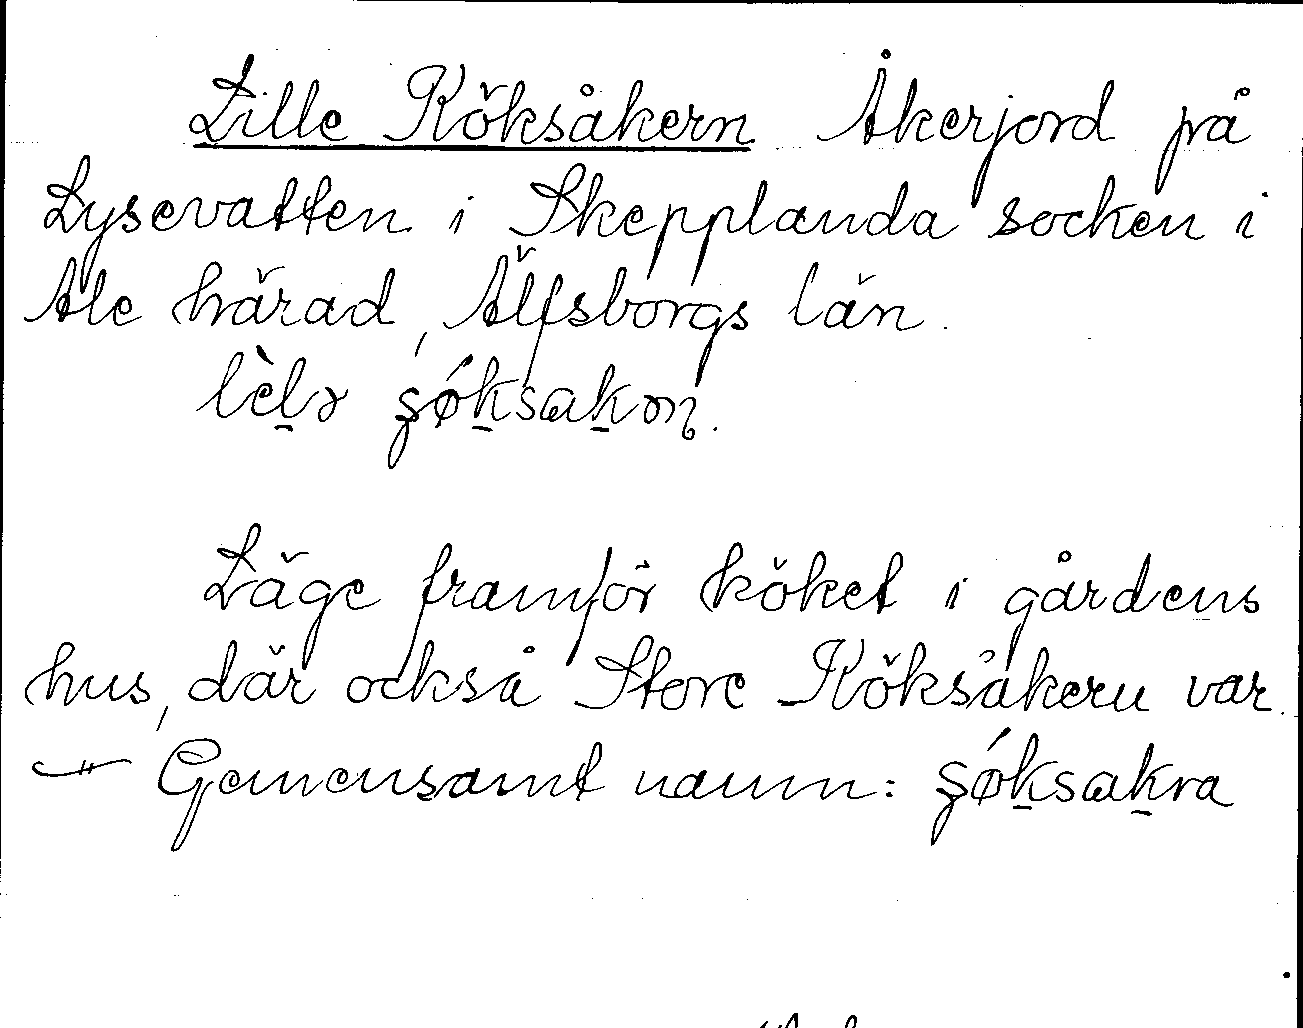 Lille Köksåkern Åkerjord på
Lysevatten i Skepplanda socken i
Ale härad, Älfsborgs län.
lèl̠ə ʂǿk̠sak̠ən̠.
Läge framför köket i gårdens
hus, där också Store Köksåkern var.
— Gemensamt namn: ʂǿk̠sak̠ra